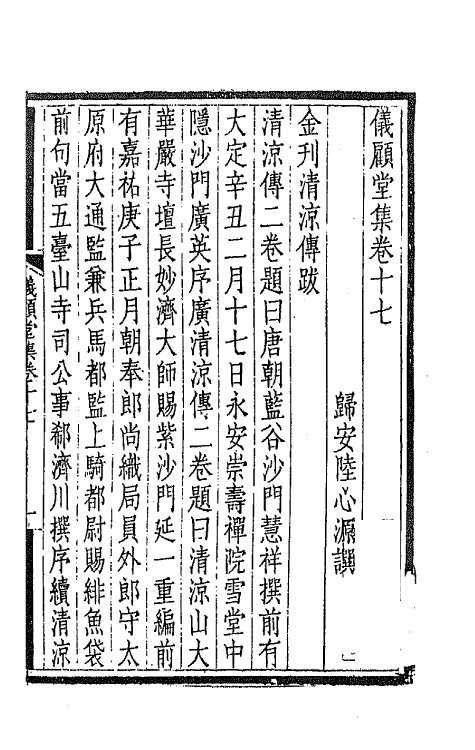 儀顧堂集卷十七
歸安陸心源譔
金刊清涼傳跋
清涼傳二卷題曰唐朝藍谷沙門慧祥撰前有
大定辛丑二月十七日永安崇壽禪院雪堂中
隱沙門廣英序廣清涼傳二卷題曰清涼山大
華嚴寺壇長妙濟大師賜紫沙門延一重編前
有嘉祐庚子正月朝奉郎尚織局員外郎守太
原府大通監兼兵馬都監上騎都尉賜緋魚袋
前句當五臺山寺司公事郄濟川撰序續清涼
儀顧堂集卷十七
一